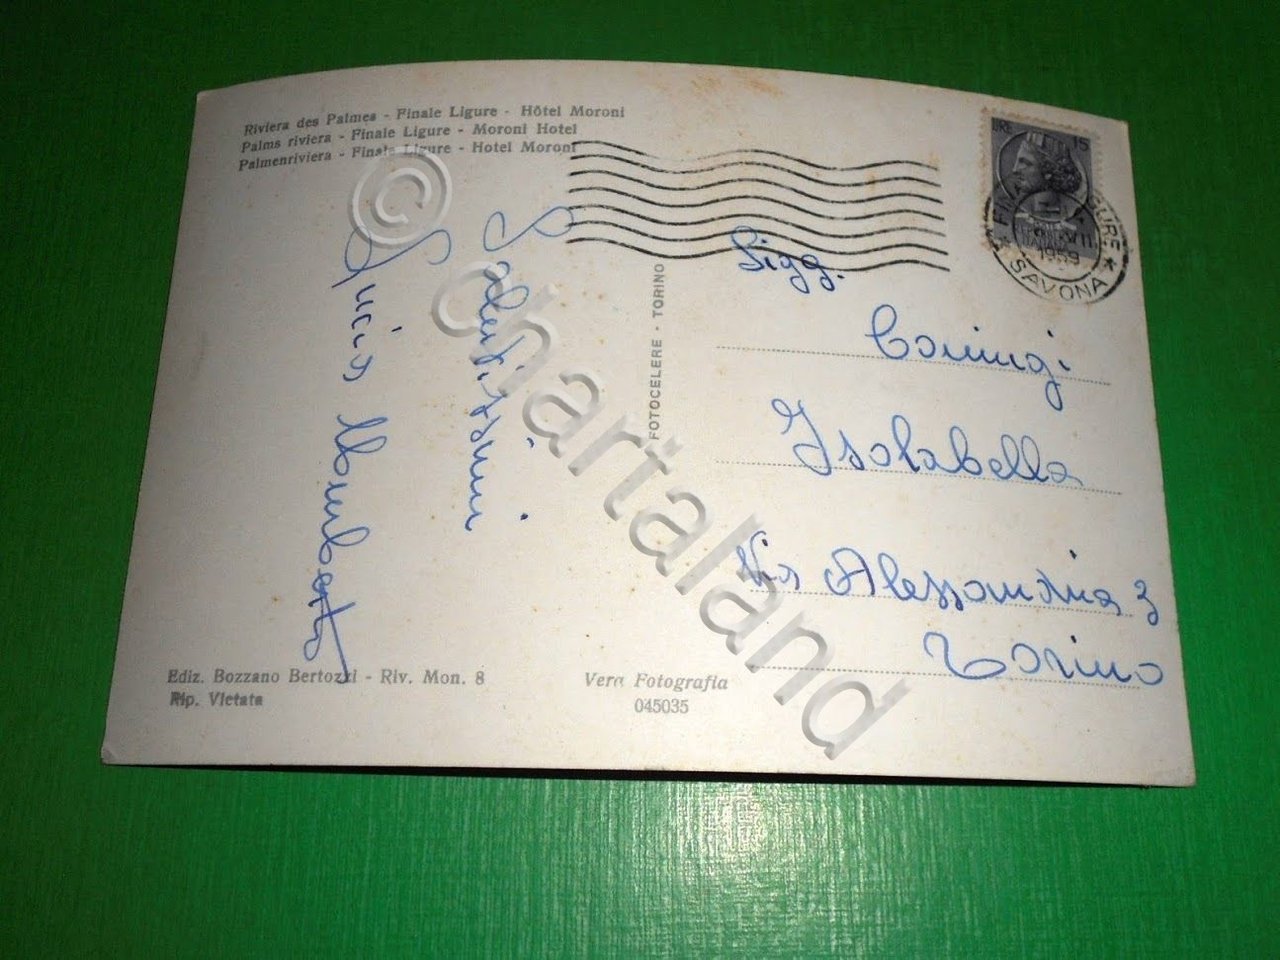 Riviera des Palmes - Finale Ligure - Hôtel Moroni
Palms riviera - Finale Ligure - Moroni Hotel
Palmenriviera - Finale Ligure - Hotel Moroni
LIRE 15
FINALE LIGURE
VII
1959
* SAVONA *
Sigg.
Isolabella
Via Alessandria 3
Torino
Salutissimi
FOTOCELERE - TORINO
Ediz. Bozzano Bertozzi - Riv. Mon. 8
Rip. Vietata
Vera Fotografia
045035
© chartaland